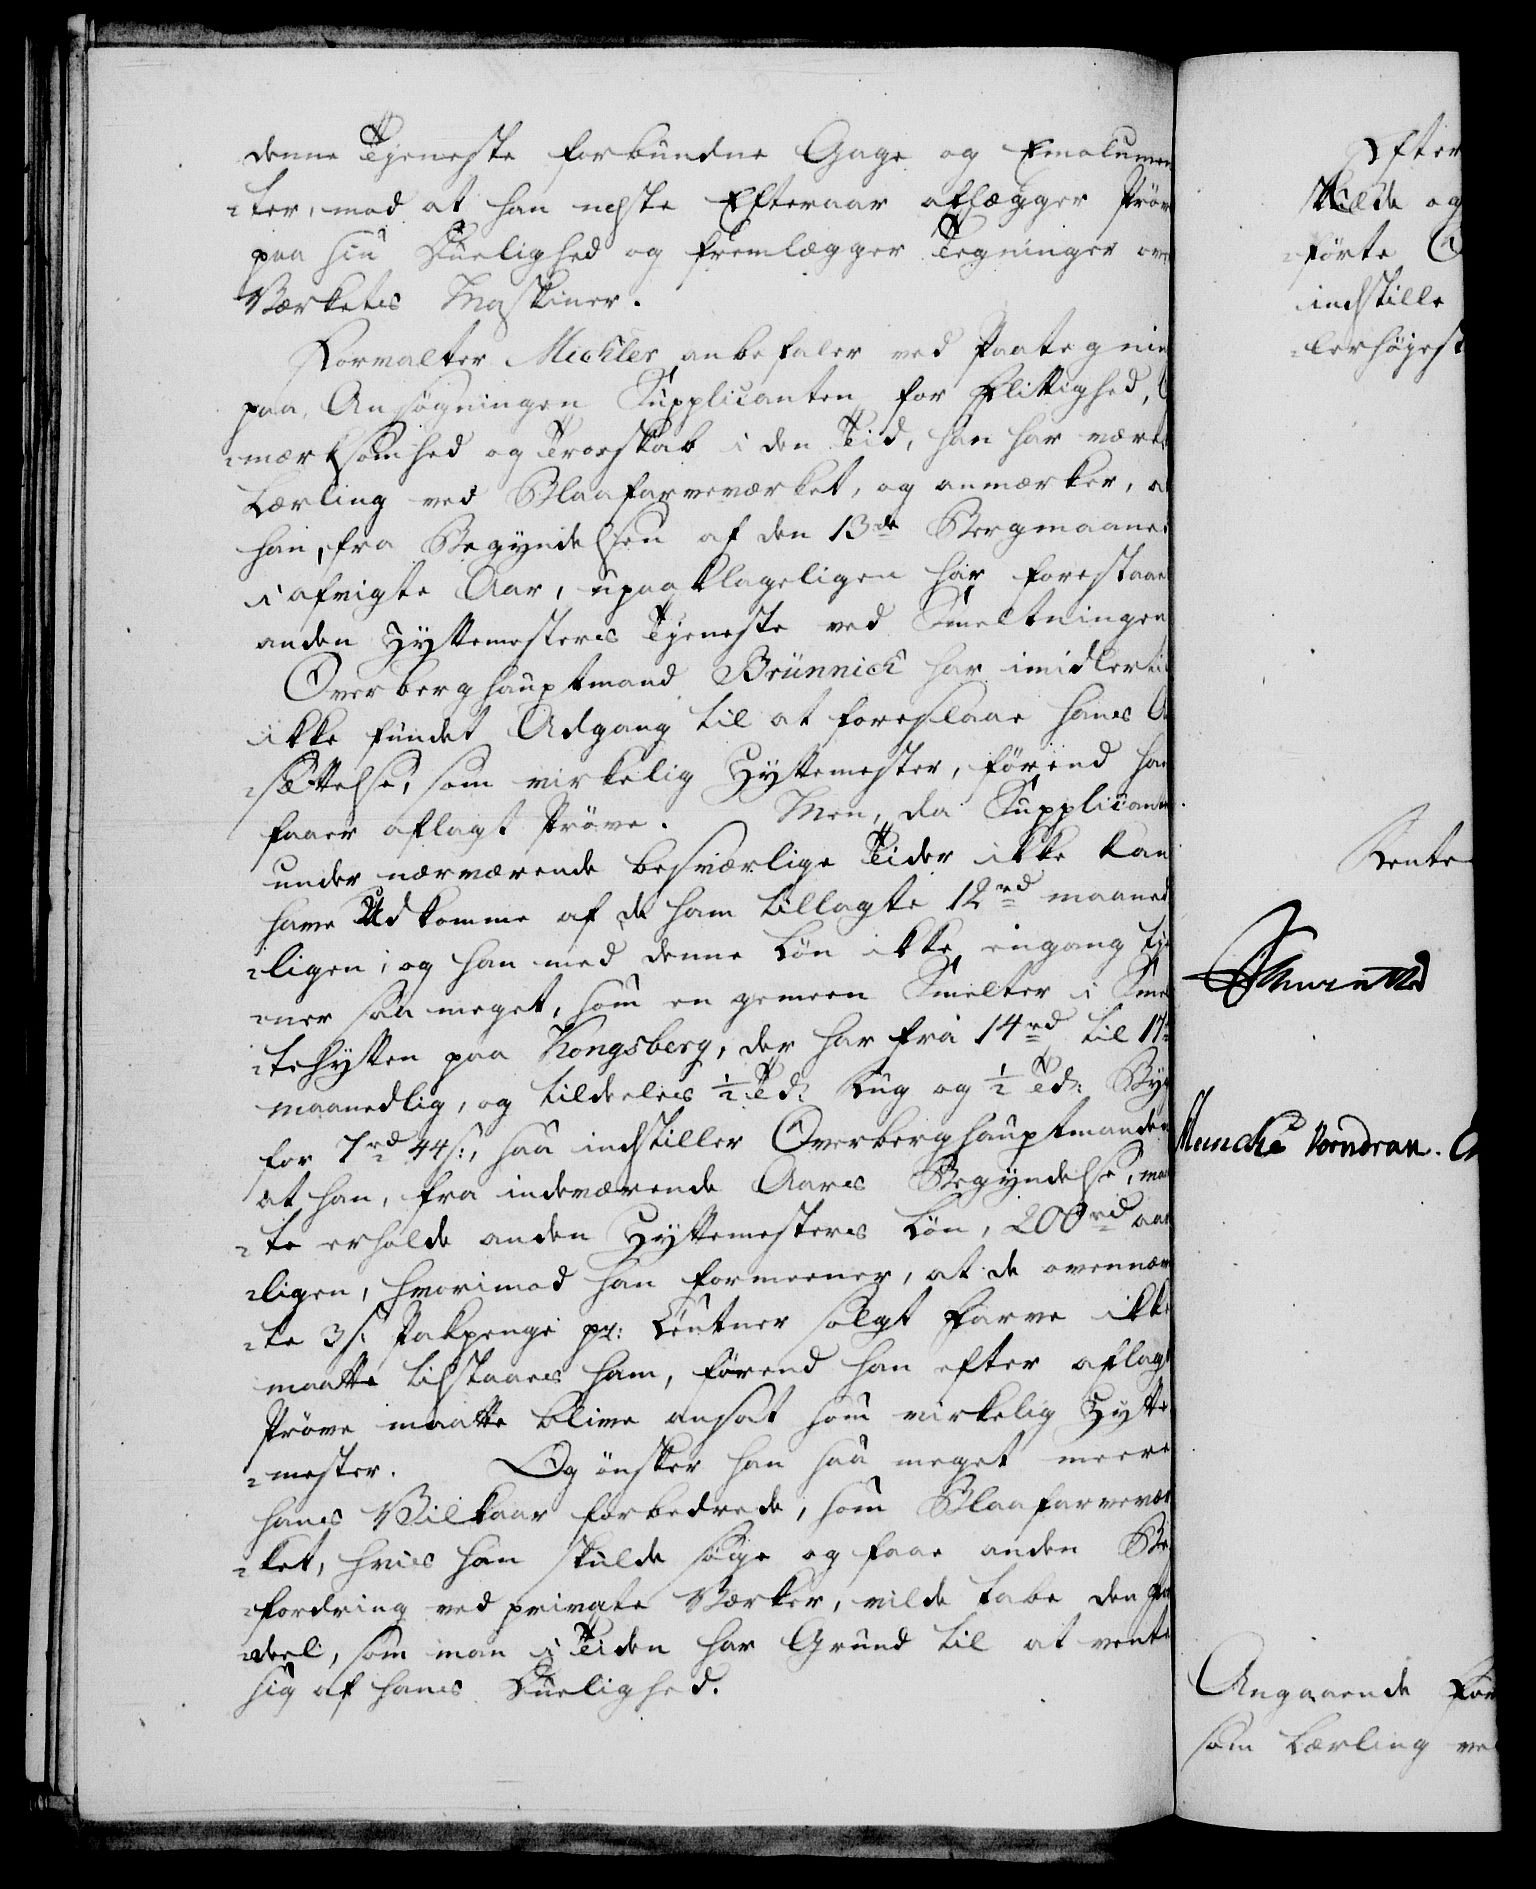 denne Tjeneste forbundne Gage og Emolumen
ter, mod at han neste Efteraar aflægger Prøv
paa sin Duelighed og fremlægger Tegninger ove
Værkets Maskiner.
Forvalter Michler anbefaler ved Paategnin
paa Ansøgningen Supplicanten for Flittighed,
mærksomhed og Troeskab i den Tid, han har være
Lærling ved Blaafarveværket, og anmærker, a
han, fra Begyndelsen af den 13de Bergmaane
i afvigte Aar, upaaklageligen har forestaae
anden Hyttemesters Tjeneste ved Smeltningen
Overberghauptmand Brünnich har imidlerti
ikke fundet Adgang til at foreslaae hans A
sættelse, som virkelig Hyttemester, førend han
faaer aflagt Prøve. Men, da Supplicant
under nærværende besværlige Tider ikke kan
have Udkomme af de ham tillagte 12 rd maaned
ligen, og han med denne Løn ikke engang tje
ner saa meget, som en gemeen Smelter i Smel
tehytten paa Kongsberg, der har fra 14 rd til 17
maanedlig, og tildeeles ½ Td: Rug og ½ Td: Byg
for 7 rd 44 s:, saa indstiller Overberghauptmanden
at han, fra indeværende Aars Begyndelse, maa
te erholde anden Hyttemesters Løn, 200 rd aar
ligen, hvorimod han formeener, at de ovennæv
te 3 s: Pakpenge pr: Centner solgt Farve ikke
maatte tilstaaes ham, førend han efter aflagt
Prøve maatte blive ansat som virkelig Hytte
mester. Og ønsker han saa meget meere
hans Vilkaar forbedrede, som Blaafarvevær
ket, hvis han skulde søge og faae anden Be
fordring ved private Værker, vilde tabe den For
deel, som man i Tiden har Grund til at vente
sig af hans Duelighed.
Efter
Kilde og
førte
indstille
lerhøjest
Rente
Munche Vorndran.
Angaaende For
som Lærling ve